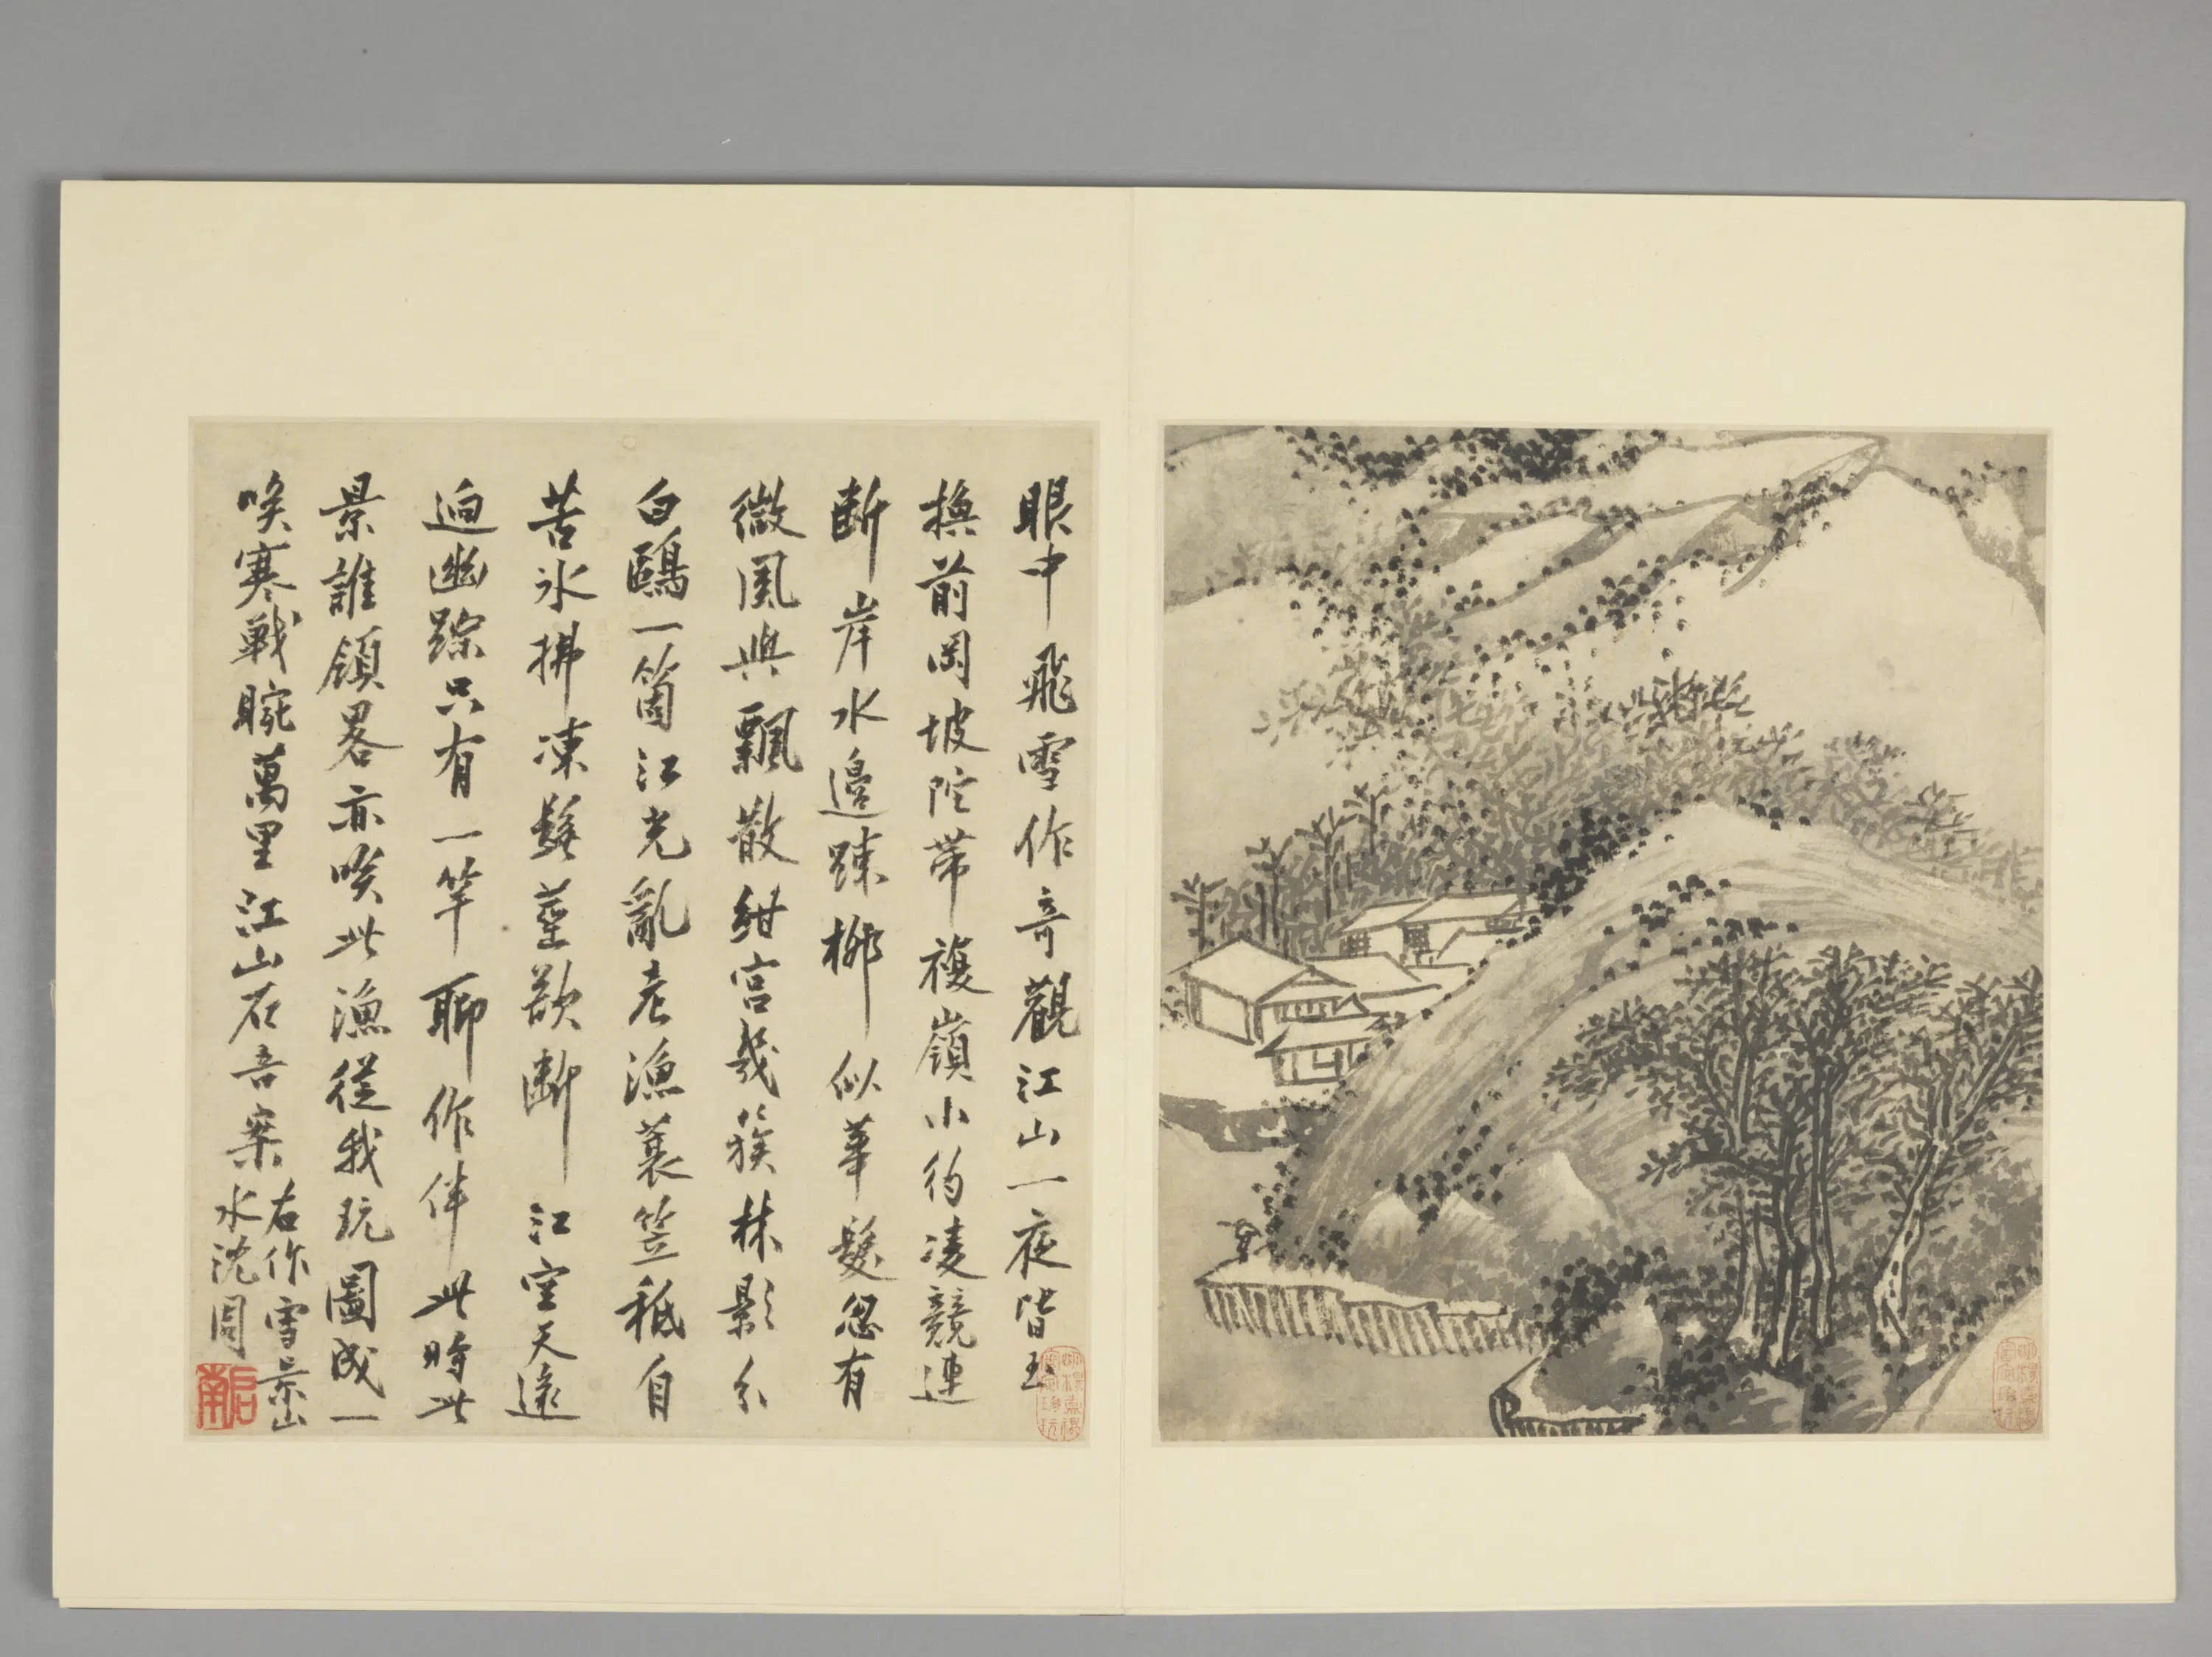 眼中飛雪作奇觀江山一夜皆玉
換前岡坡陀帶複嶺小約凌競連
斷岸水邊踈柳似華髮忽有
微風與飄散紺宮幾簇林影分
白鷗一箇江光亂老漁蓑笠秪自
苦冰拂凍鬚莖欲斷江空天遠
迥幽踪只有一竿聊作伴此時此
景誰領畧亦唉此漁從我玩圖成一
唉寒戰腕萬里江山在吾案
右作雪景山
水沈周
啟南